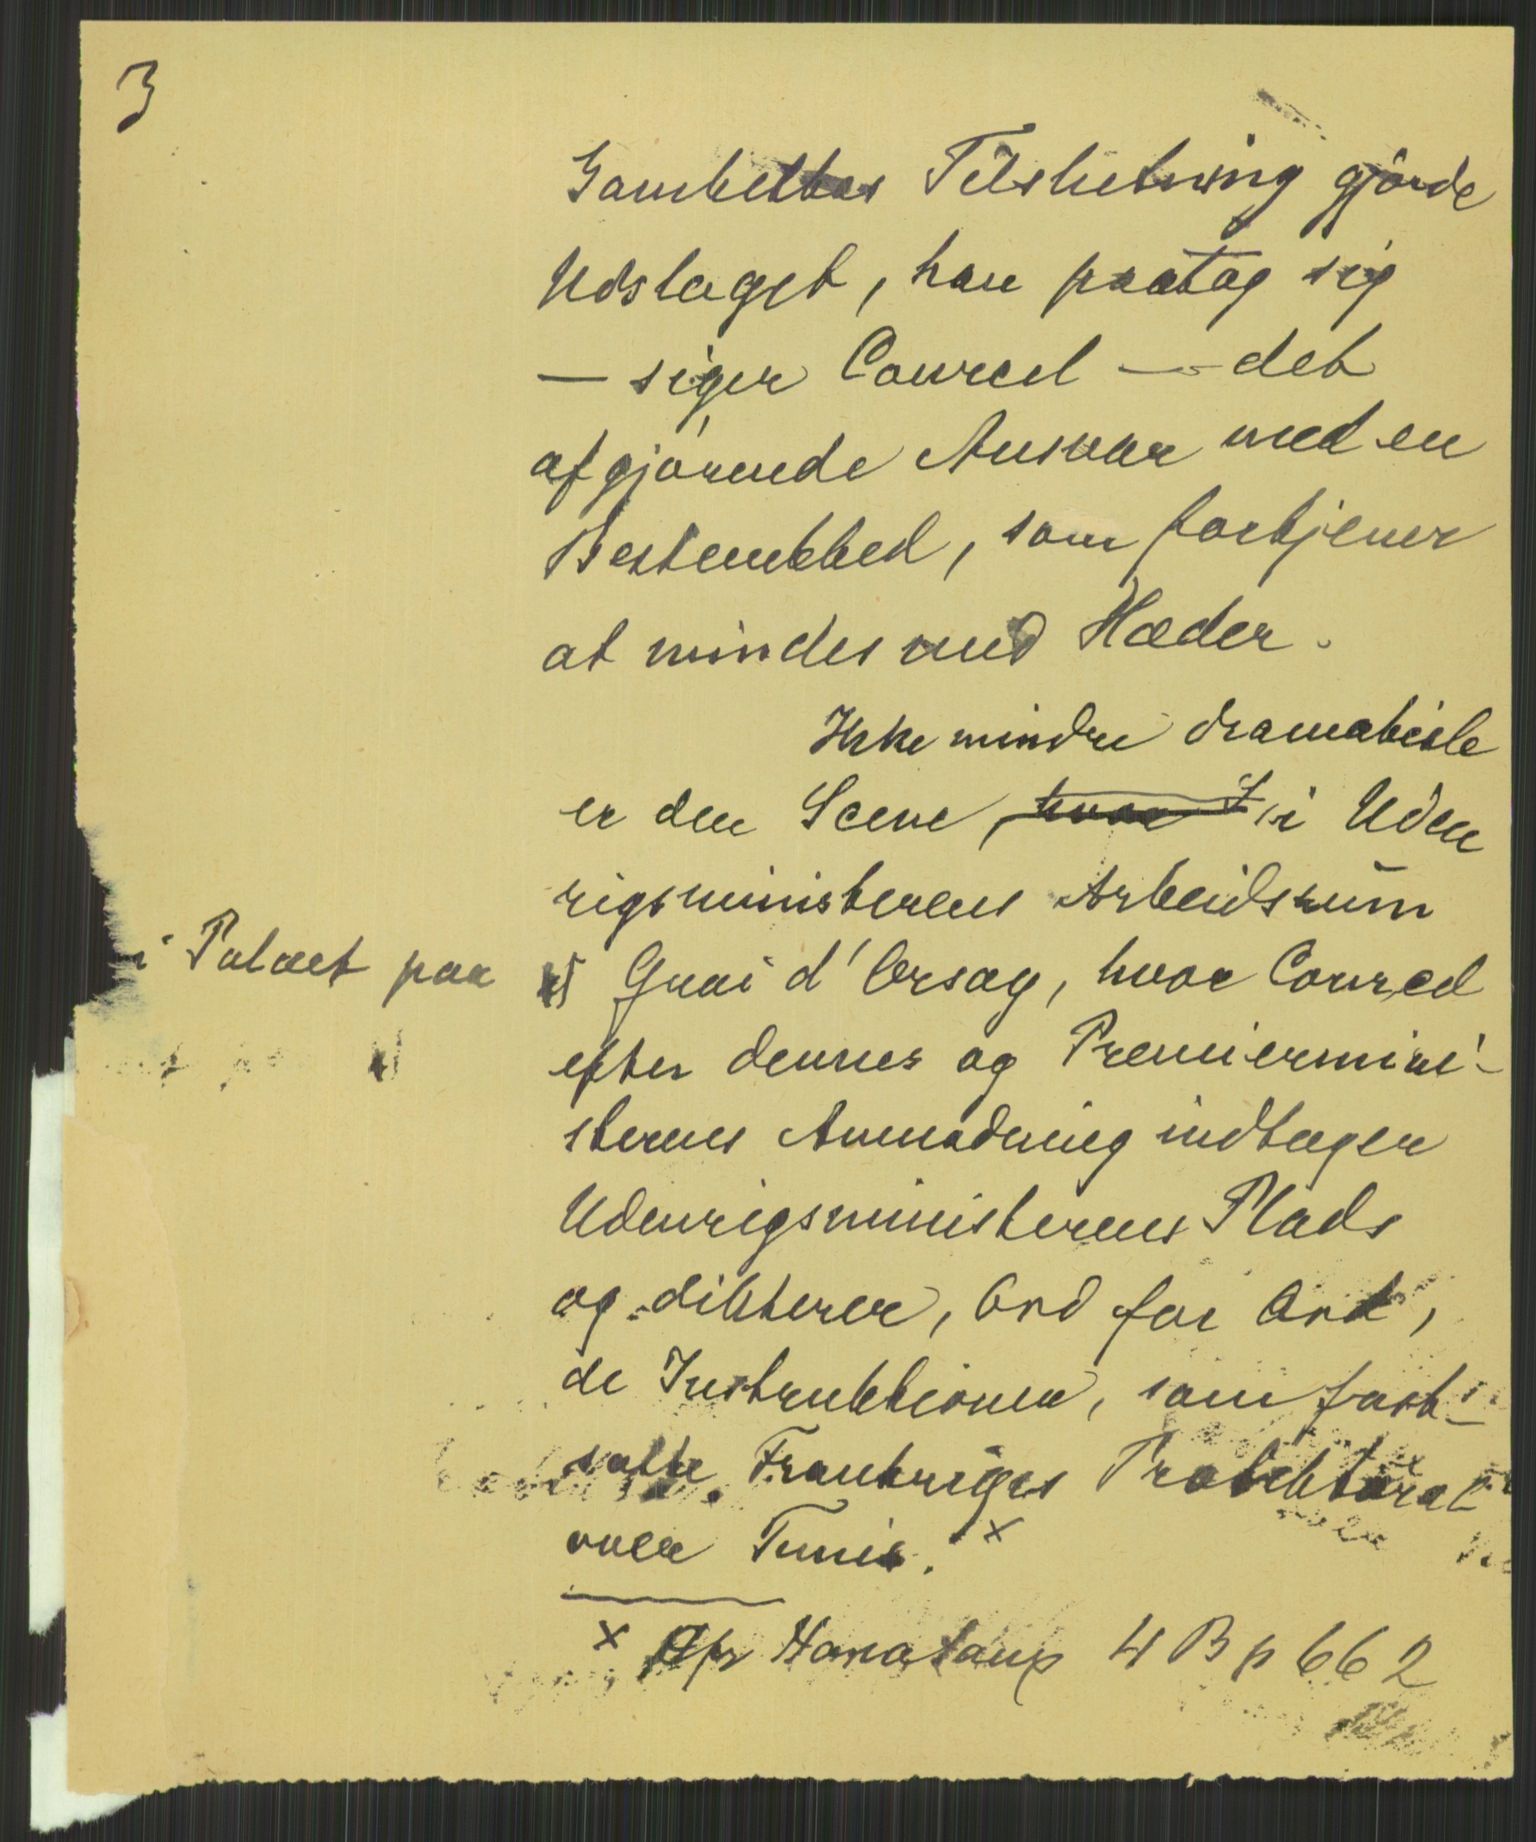 3
Gambettas Tilslutning gjörde
Udslaget, han paatog sig
— siger Courcel — det
afgjörende Ansvar med en
Bestemthed, som fortjener
at mindes med Hæder.
Ikke mindre dramatiske
er den Scene, hvor i Uden
rigsministerens Arbeidsrum
i Palæet paa Quai d'Orsay, hvor Courcel
efter dennes og Premiermini-
sterens Anmodning indtager
Udenrigsministerens Plads
og dikterer, Ord for Ord,
de Instruktioner, som fast-
satte Frankriges Protektorat
over Tunis. x
x Hanotaux 4 B p 662